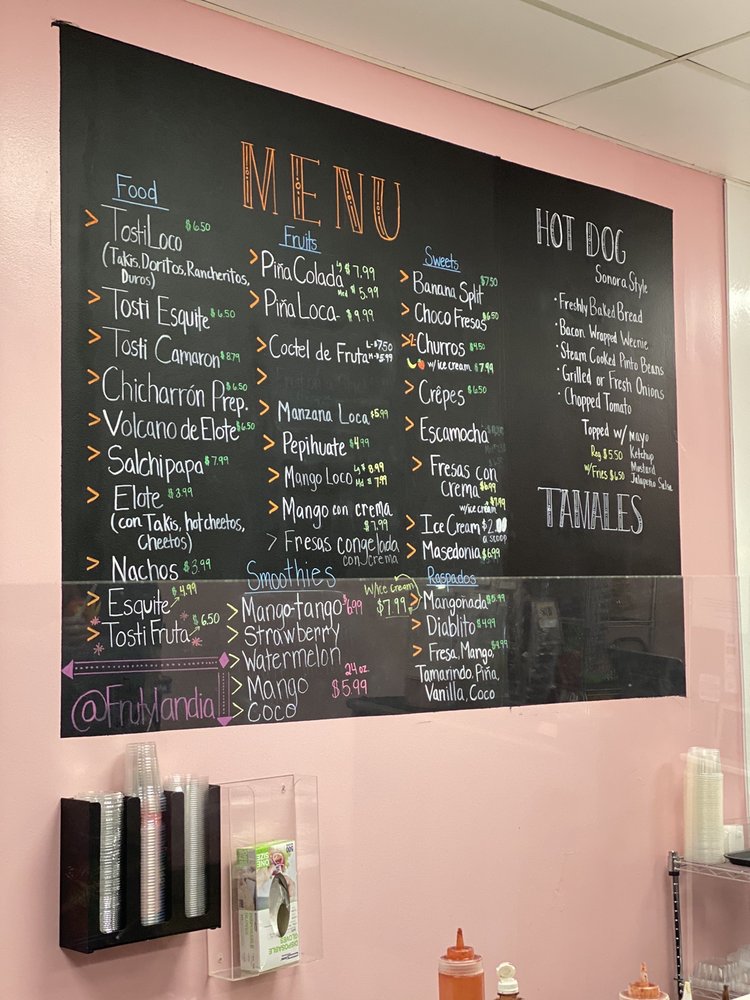 MENU
Food
> TostiLoco $6.50
(Takis, Doritos, Rancheritos,
Duros)
> Tosti Esquite $6.50
> Tosti Camaron $8.79
> Chicharrón Prep. $6.50
> Volcano de Elote $6.50
> Salchipapa $7.99
> Elote $3.99
(con Takis, hot cheetos,
Cheetos)
> Nachos $3.99
> Esquite $4.99
> Tosti Fruta $6.50
@Frutylandia
Fruits
> Piña Colada Lg $7.99
Med $5.99
> Piña Loca - $9.99
> Coctel de Fruta L-$7.50
M-$5.99
>
> Manzana Loca $5.99
> Pepihuate $4.99
> Mango Loco Lg $8.99
Md $7.99
> Mango con crema
$7.99
> Fresas congelada
con crema
Smoothies
> Mango-tango $6.99
> Strawberry
> Watermelon
> Mango
> Coco
24 oz
$5.99
W/Ice Cream
$7.99
Sweets
> Banana Split $7.50
> Choco Fresas $6.50
> 2- Churros $4.50
w/ice cream $7.99
> Crêpes $6.50
> Escamocha
> Fresas con
Crema $6.99
w/ice cream $7.99
> Ice Cream $2.00
a scoop
> Masedonia $6.99
Raspados
> Mangonada $5.99
> Diablito $4.99
> Fresa, Mango, $4.99
Tamarindo, Piña,
Vanilla, Coco
HOT DOG
Sonora Style
• Freshly Baked Bread
• Bacon Wrapped Weenie
• Steam Cooked Pinto Beans
• Grilled or Fresh Onions
• Chopped Tomato
Topped w/ mayo
Ketchup
Mustard
Jalapeño Salsa
Reg $5.50
w/Fries $6.50
TAMALES
ONE
SIZE
DISPOSABLE
GLOVES